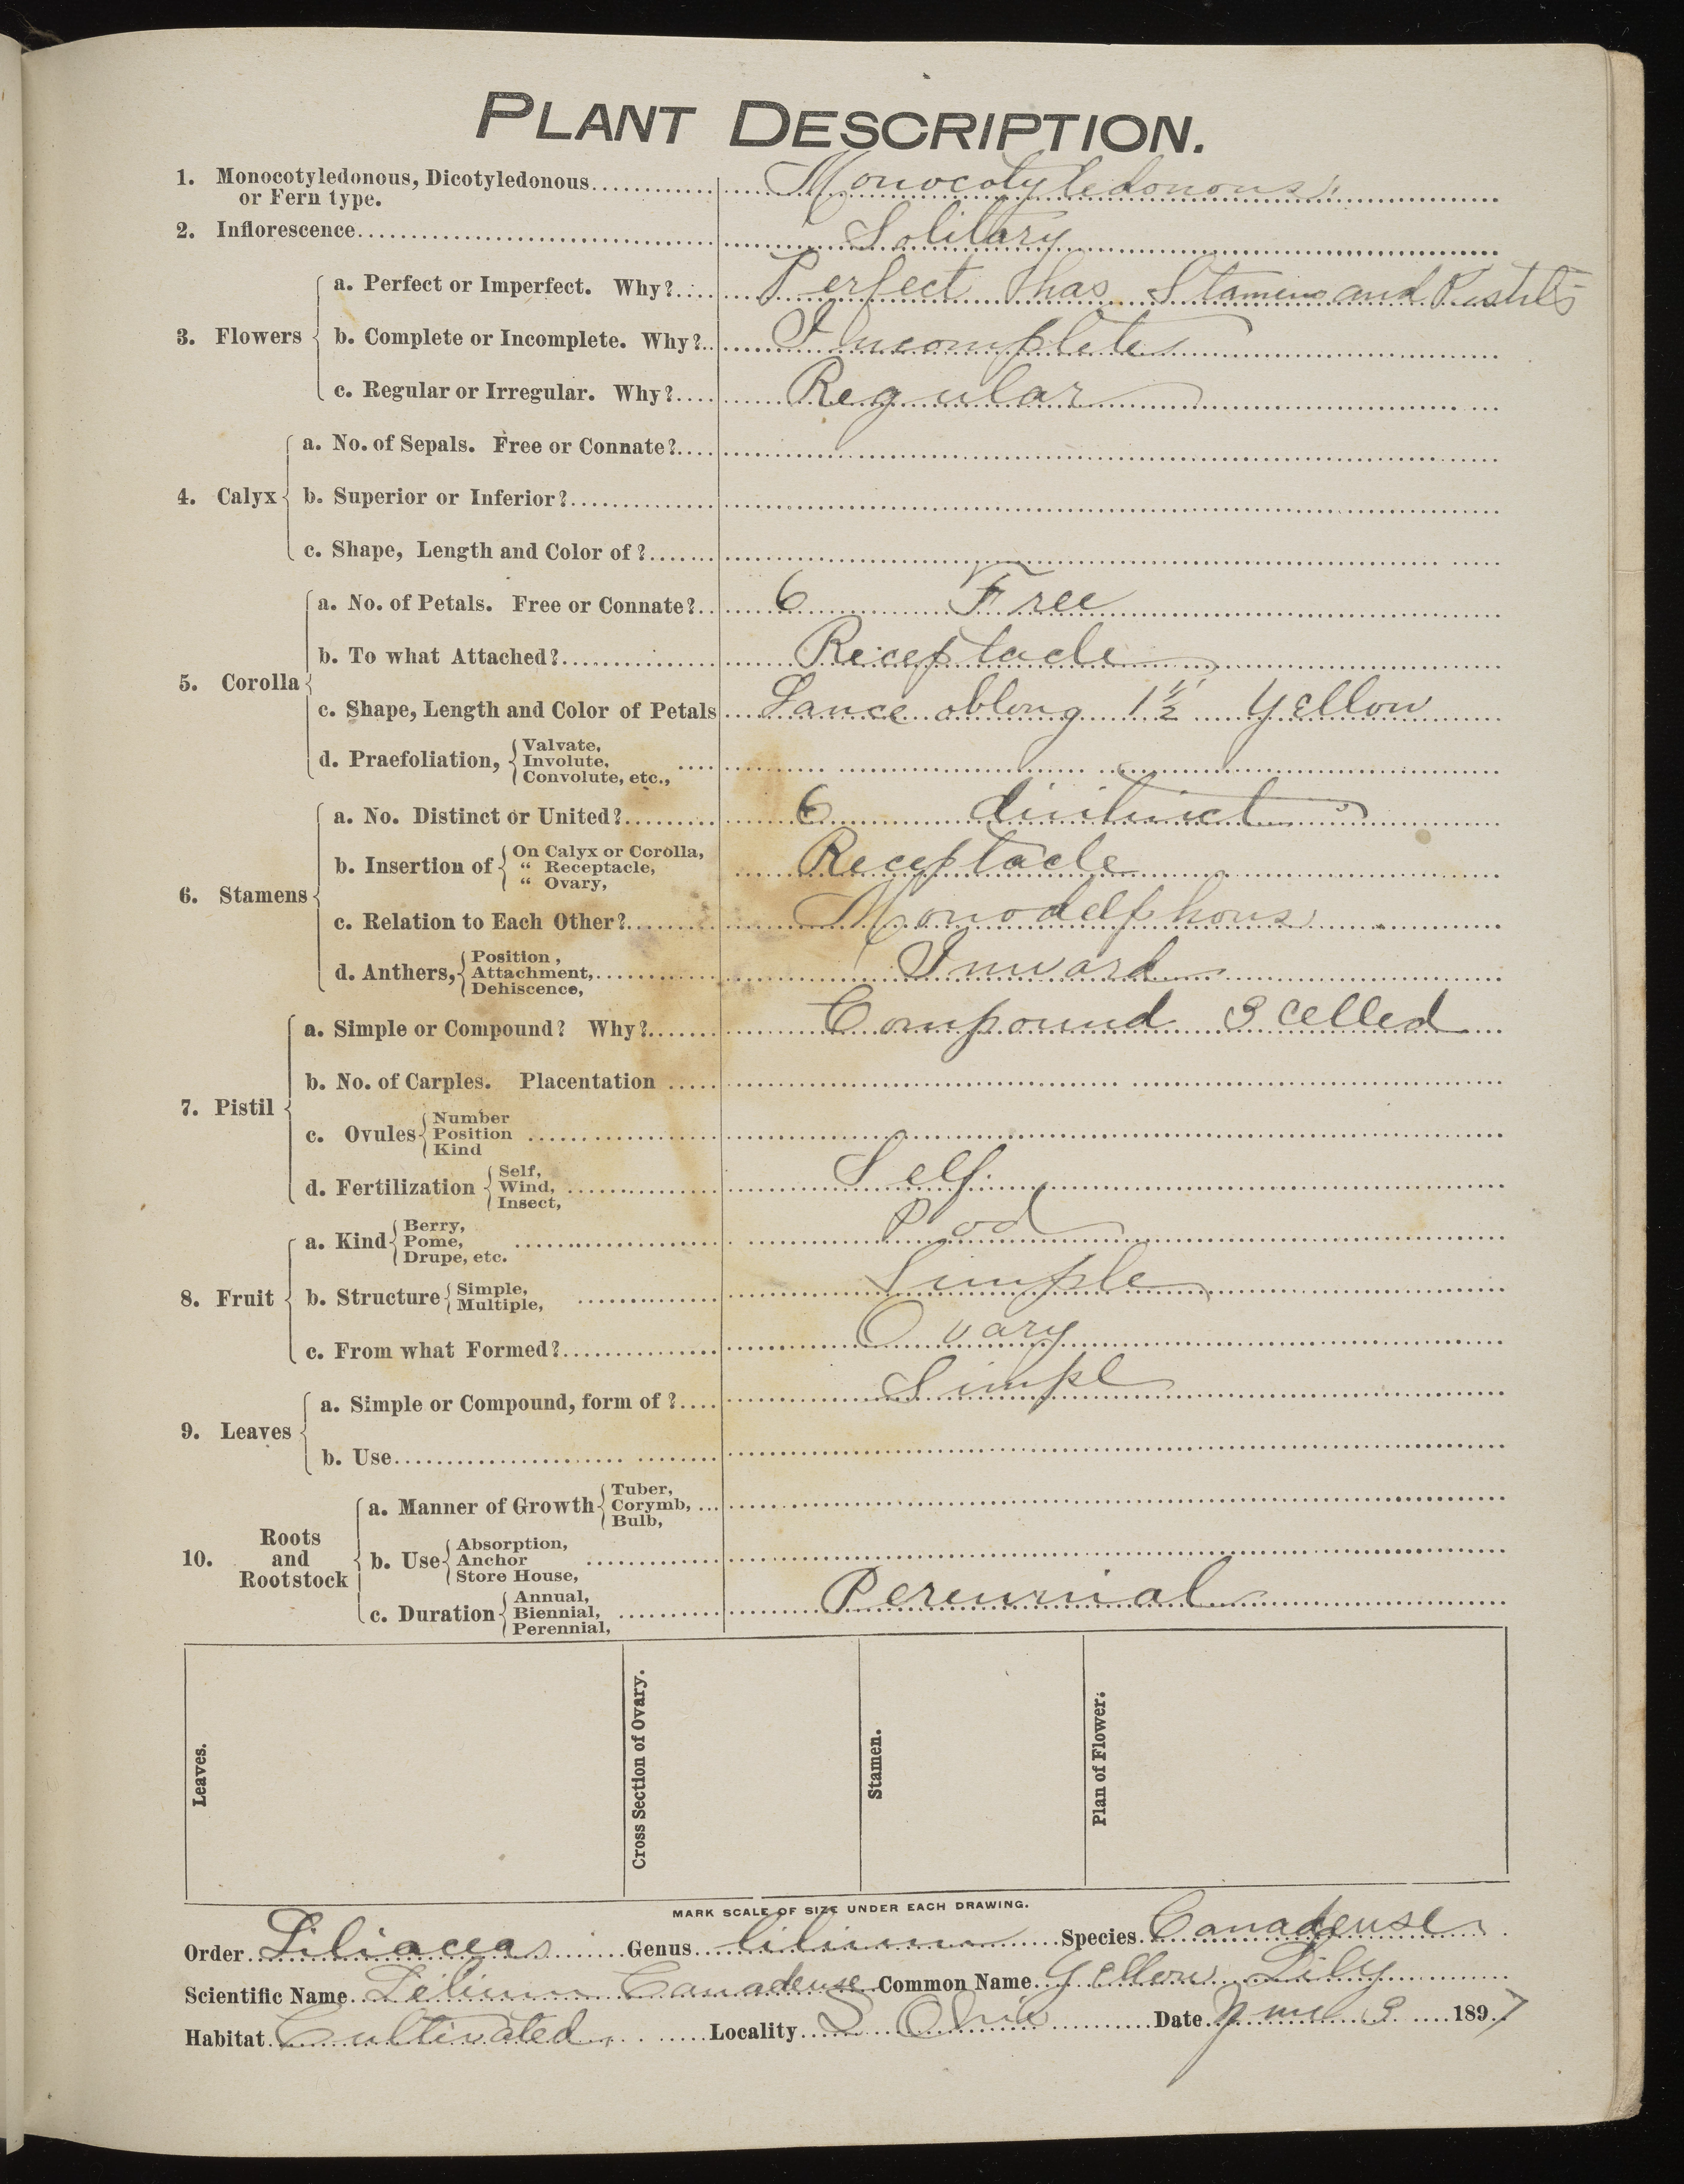 PLANT DESCRIPTION.
1. Monocotyledonous, Dicotyledonous or Fern type. Monocotyledonous.
2. Inflorescence Solitary
3. Flowers
a. Perfect or Imperfect. Why? Perfect has Stamens and Pistils
b. Complete or Incomplete. Why? Incomplete
c. Regular or Irregular. Why? Regular
4. Calyx
a. No. of Sepals. Free or Connate?
b. Superior or Inferior?
c. Shape, Length and Color of?
5. Corolla
a. No. of Petals. Free or Connate? 6 Free
b. To what Attached? Receptacle
c. Shape, Length and Color of Petals Lance oblong 1½" Yellow
d. Praefoliation, Valvate, Involute, Convolute, etc.,
6. Stamens
a. No. Distinct or United? 6 distinct
b. Insertion of On Calyx or Corolla, " Receptacle, " Ovary, Receptacle
c. Relation to Each Other? Monodelphous
d. Anthers, Position, Attachment, Dehiscence, Inward
7. Pistil
a. Simple or Compound? Why? Compound 3 celled
b. No. of Carples. Placentation
c. Ovules Number Position Kind
d. Fertilization Self, Wind, Insect, Self.
8. Fruit
a. Kind Berry, Pome, Drupe, etc. Pod
b. Structure Simple, Multiple, Simple
c. From what Formed? Ovary
9. Leaves
a. Simple or Compound, form of? Simpl
b. Use
10. Roots and Rootstock
a. Manner of Growth Tuber, Corymb, Bulb,
b. Use Absorption, Anchor Store House,
c. Duration Annual, Biennial, Perennial, Perennial
Leaves.
Cross Section of Ovary.
Stamen.
Plan of Flower.
MARK SCALE OF SIZE UNDER EACH DRAWING.
Order Liliacea Genus lilium Species Canadense
Scientific Name Lilium Canadense Common Name Yellow Lily
Habitat Cultivated. Locality S Ohio Date June 3 1897